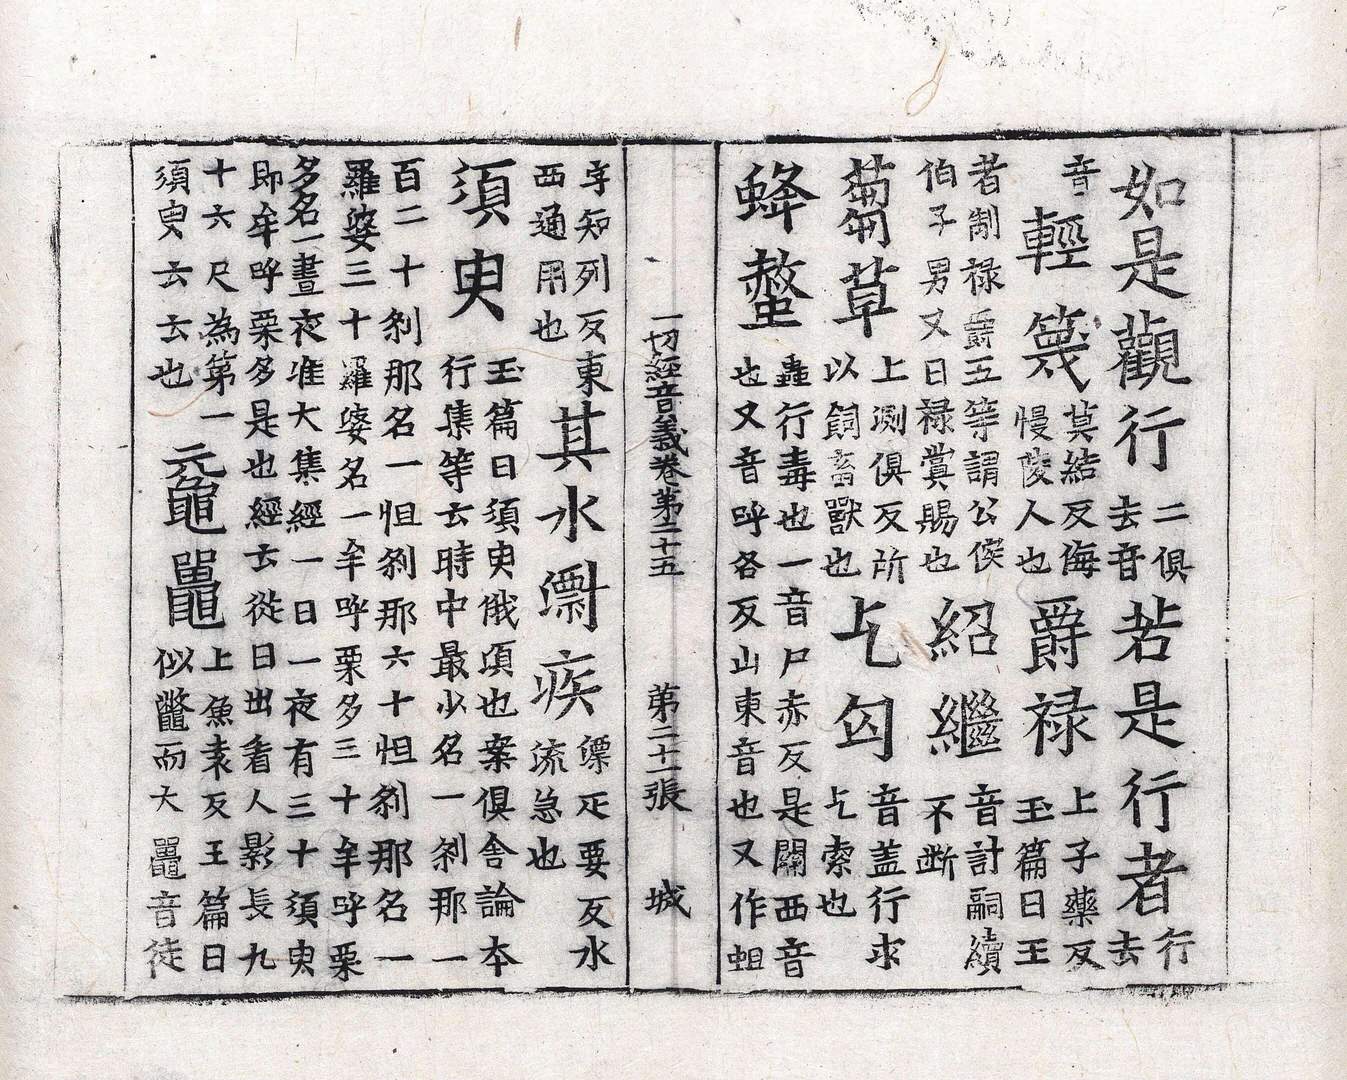 如是觀行二俱去音若是行者行去
音輕篾莫結反侮慢陵人也爵禄上子藥反玉篇曰王
者制禄爵五等謂公侯伯子男又曰禄賞賜也紹繼音計嗣續不断
蒭草上測俱反所以飼畜獸也乞匃音盖行求乞索也
蜂螫蟲行毒也一音尸赤反是關西音也又音呼各反山東音也又作蛆
一切經音義卷第二十五 第二十一張 城
字知列反東西通用也其水漂疾漂疋要反水流急也
須臾玉篇曰須臾俄頃也案俱舍論本行集等云時中最少名一刹那一
百二十刹那名一怛刹那六十怛刹那名一羅婆三十羅婆名一牟呼栗多三十牟呼栗
多名一晝夜准大集經一日一夜有三十須臾即牟呼栗多是也經云從日出看人影長九
十六尺為第一須臾云云也黿鼉上魚袁反玉篇曰似鼈而大鼉音徒